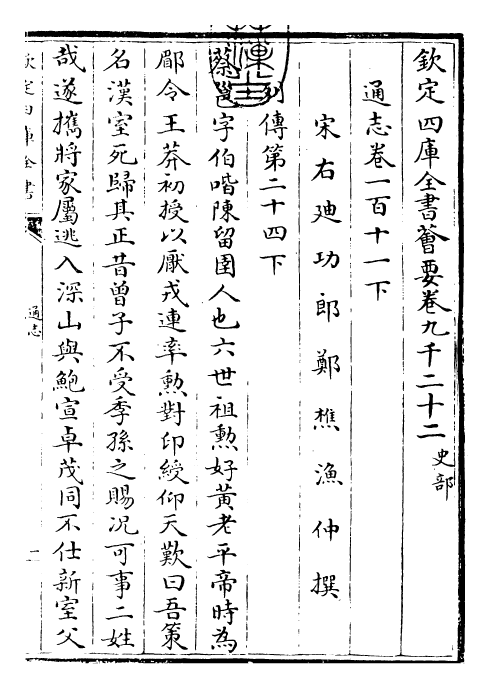 欽定四庫全書薈要卷九千二十二 史部
通志卷一百十一下
宋右廸功郎鄭樵漁仲撰
列傳第二十四下
蔡邕字伯喈陳留圉人也六世祖勲好黃老平帝時為
郿令王莽初授以厭戎連率勲對印綬仰天歎曰吾策
名漢室死歸其正昔曾子不受季孫之賜况可事二姓
哉遂攜將家屬逃入深山與鮑宣卓茂同不仕新室父
欽定四庫全書
通志